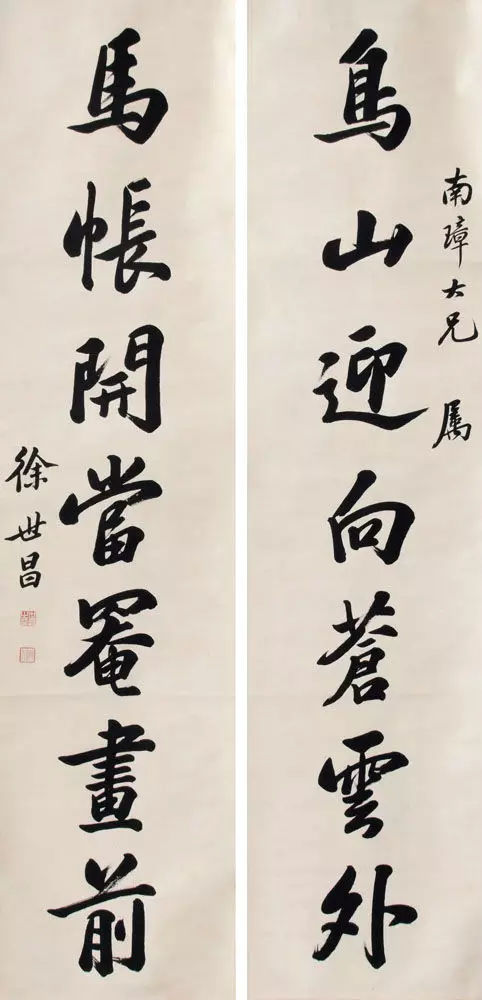 南璋大兄 属
鳥山迎向蒼雲外
馬帳開當罨畫前
徐世昌